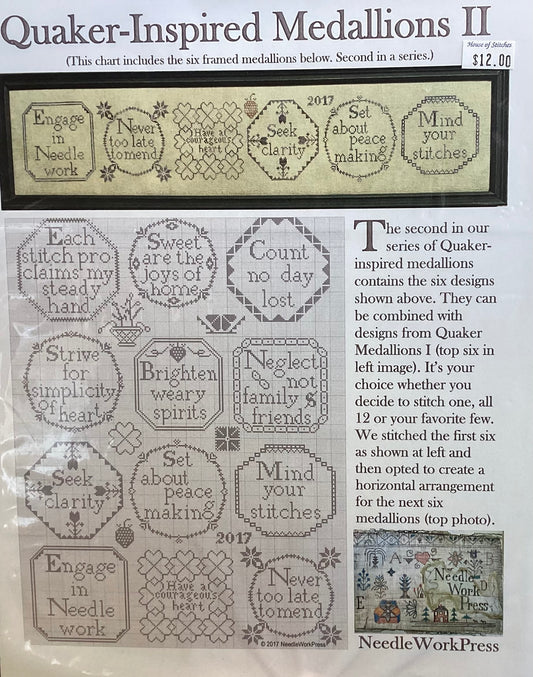 Quaker-Inspired Medallions II
(This chart includes the six framed medallions below. Second in a series.)
House of Stitches
$12.00
Engage
in
Needle
work
Never
too late
to mend
Have a
courageous
heart
Seek
clarity
2017
Set
about
peace
making
Mind
your
stitches
Each
stitch pro
claims my
steady
hand
Sweet
are the
joys of
home
Count
no day
lost
Strive
for
simplicity
of heart
Brighten
weary
spirits
Neglect
not
family &
friends
Seek
clarity
Set
about
peace
making
Mind
your
stitches
2017
Engage
in
Needle
work
Have a
courageous
heart
Never
too late
to mend
© 2017 NeedleWorkPress
The second in our
series of Quaker-
inspired medallions
contains the six designs
shown above. They can
be combined with
designs from Quaker
Medallions I (top six in
left image). It's your
choice whether you
decide to stitch one, all
12 or your favorite few.
We stitched the first six
as shown at left and
then opted to create a
horizontal arrangement
for the next six
medallions (top photo).
Needle
Work
Press
NeedleWorkPress